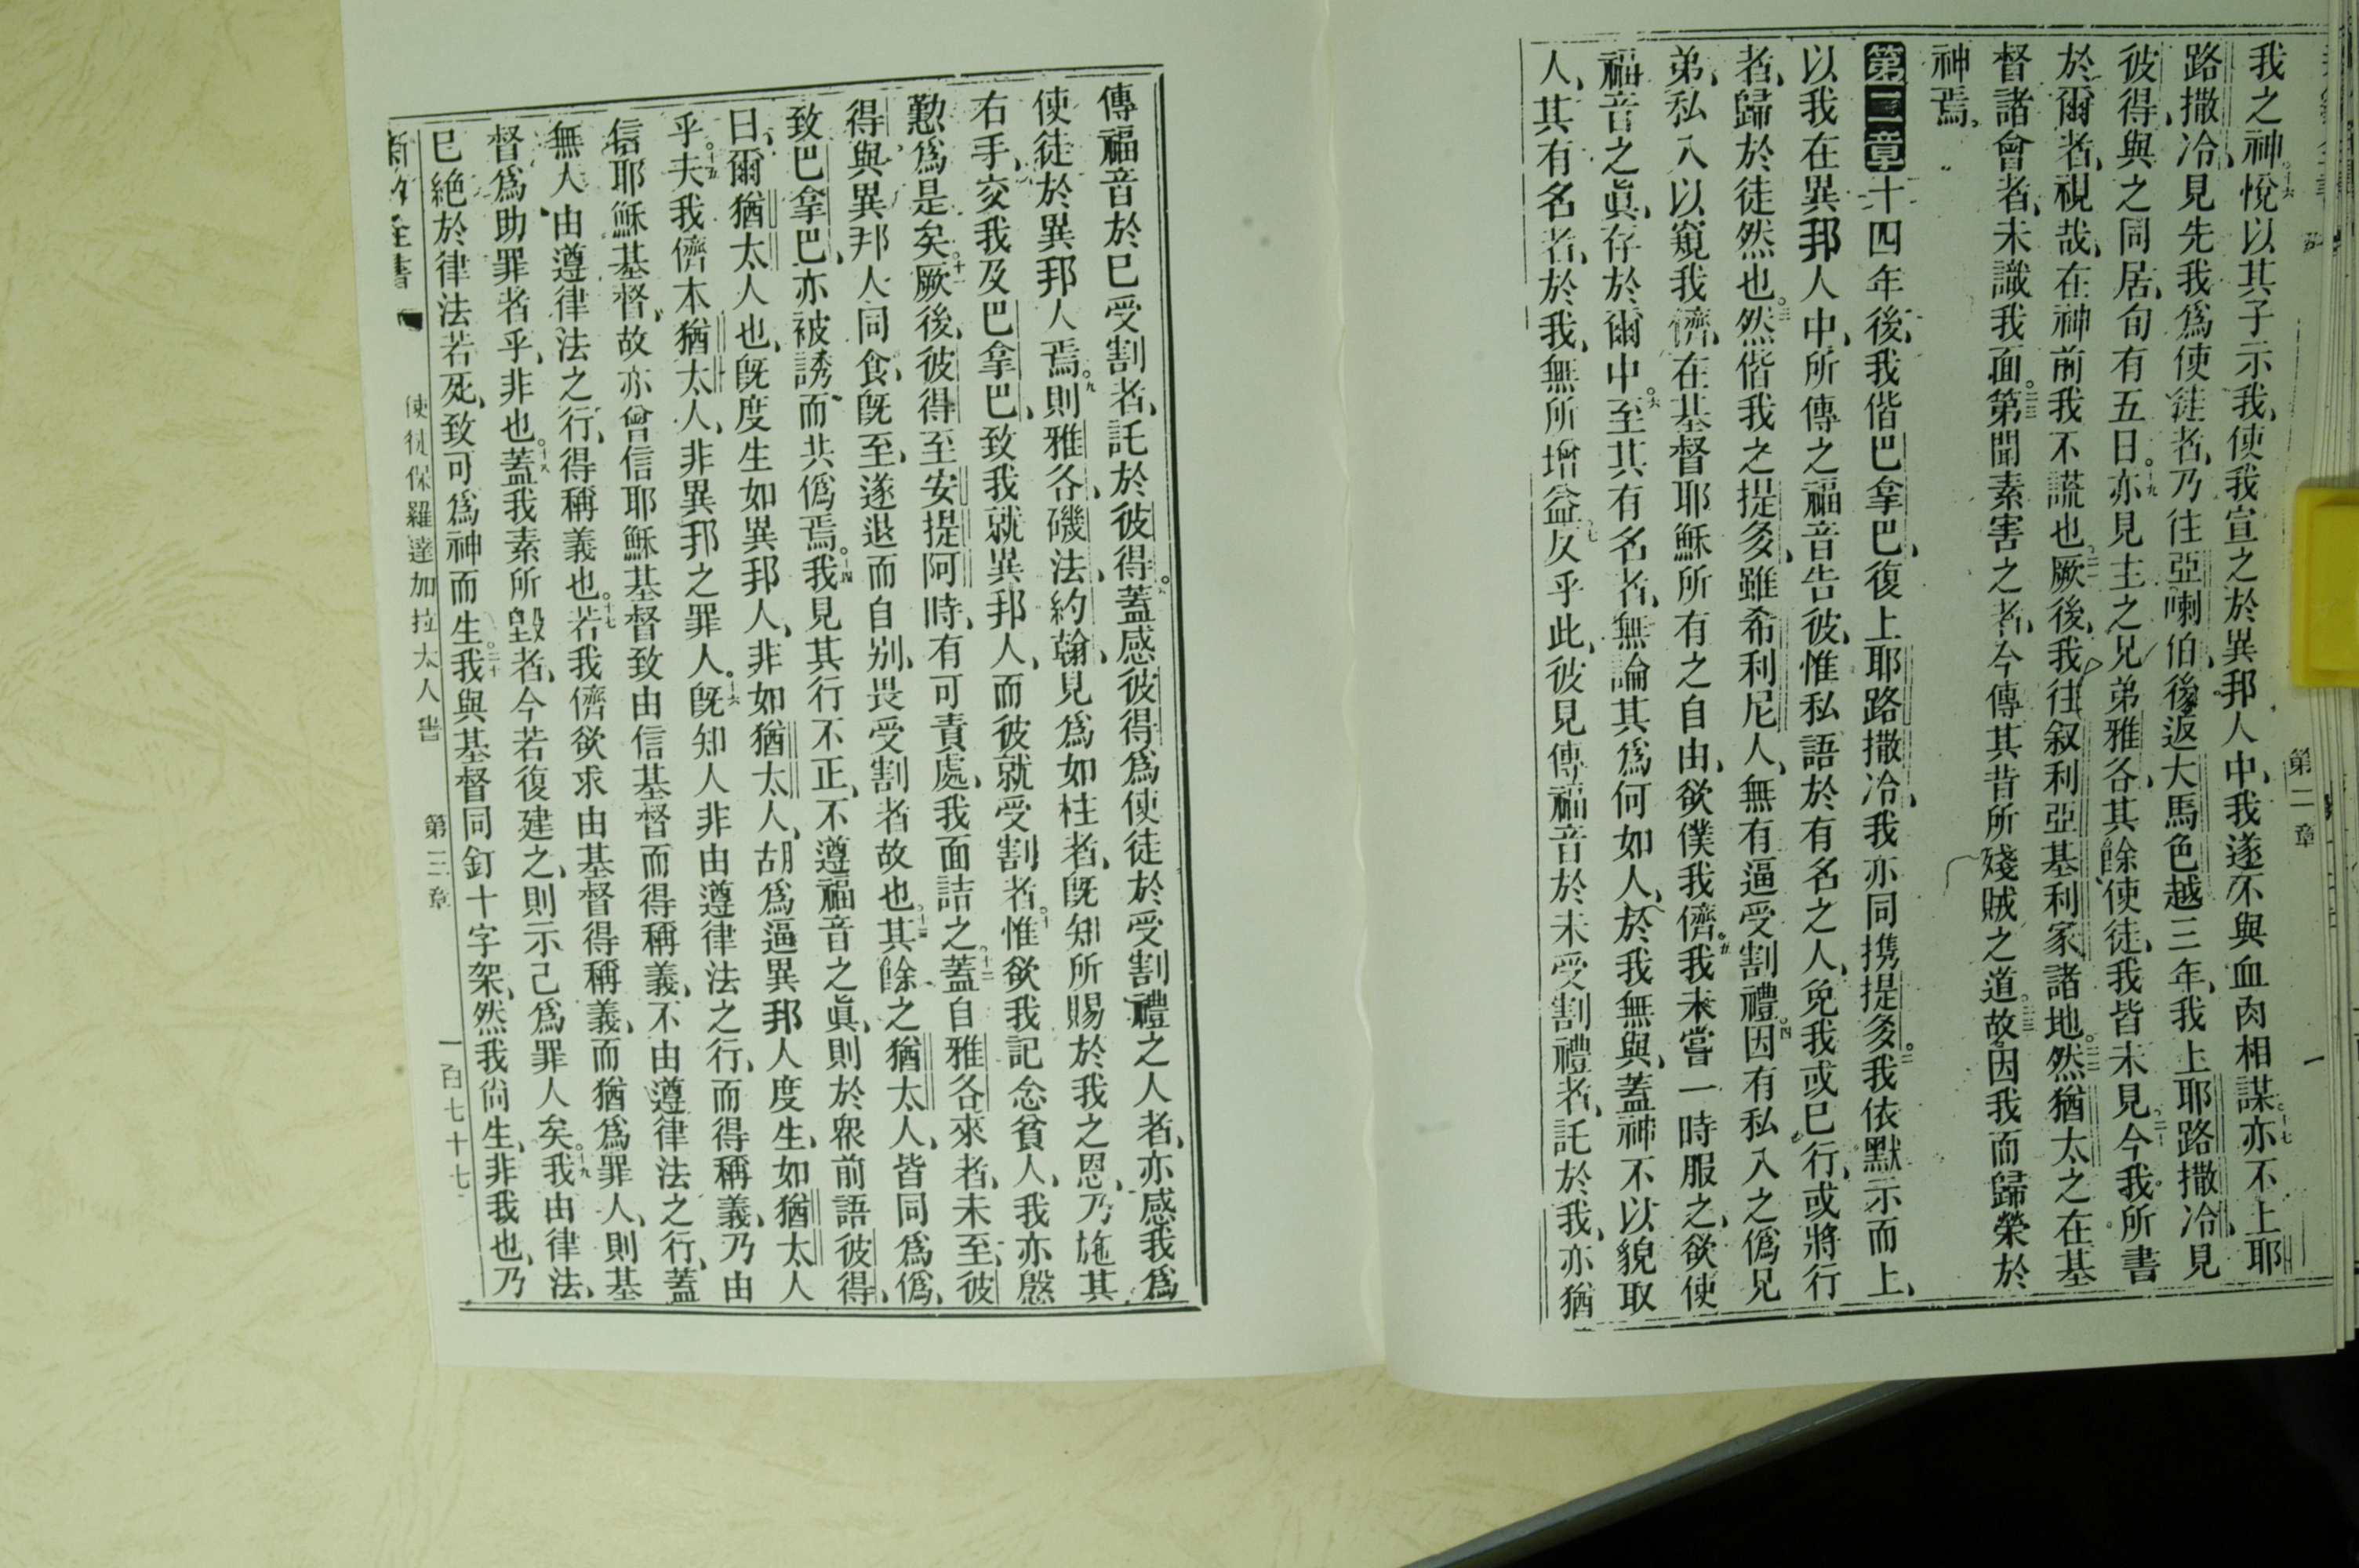 第二章
我之神悅以其子示我使我宣之於異邦人中我遂不與血肉相謀亦不上耶
路撒冷見先我爲使徒者乃往亞喇伯後返大馬色越三年我上耶路撒冷見
彼得與之同居旬有五日亦見主之兄弟雅各其餘使徒我皆未見今我所書
於爾者視哉在神前我不謊也厥後我往叙利亞基利家諸地然猶太之在基
督諸會者未識我面第聞素害之者今傳其昔所殘賊之道故因我而歸榮於
神焉
第二章十四年後我偕巴拿巴復上耶路撒冷我亦同携提多我依默示而上
以我在異邦人中所傳之福音告彼惟私語於有名之人免我或已行或將行
者歸於徒然也然偕我之提多雖希利尼人無有逼受割禮因有私入之僞兄
弟私入以窺我儕在基督耶穌所有之自由欲僕我儕我未嘗一時服之欲使
福音之眞存於爾中至其有名者無論其爲何如人於我無與蓋神不以貌取
人其有名者於我無所增益反乎此彼見傳福音於未受割禮者託於我亦猶
傳福音於已受割者託於彼得蓋感彼得爲使徒於受割禮之人者亦感我爲
使徒於異邦人焉則雅各磯法約翰見爲如柱者旣知所賜於我之恩乃施其
右手交我及巴拿巴致我就異邦人而彼就受割者惟欲我記念貧人我亦慇
懃爲是矣厥後彼得至安提阿時有可責處我面詰之蓋自雅各來者未至彼
得與異邦人同食旣至遂退而自别畏受割者故也其餘之猶太人皆同爲僞
致巴拿巴亦被誘而共僞焉我見其行不正不遵福音之眞則於衆前語彼得
曰爾猶太人也旣度生如異邦人非如猶太人胡爲逼異邦人度生如猶太人
乎夫我儕本猶太人非異邦之罪人旣知人非由遵律法之行而得稱義乃由
信耶穌基督故亦曾信耶穌基督致由信基督而得稱義不由遵律法之行蓋
無人由遵律法之行得稱義也若我儕欲求由基督得稱義而猶爲罪人則基
督爲助罪者乎非也蓋我素所毀者今若復建之則示己爲罪人矣我由律法
已絕於律法若死致可爲神而生我與基督同釘十字架然我尙生非我也乃
使徒保羅達加拉太人書 第三章 一百七十七